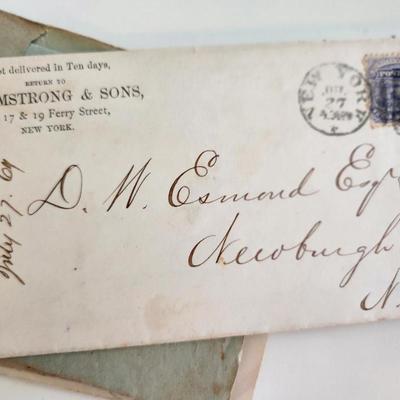 ot delivered in Ten days,
RETURN TO
MSTRONG & SONS,
17 & 19 Ferry Street,
NEW YORK.
NEW YORK
JUL
27
POST
D. W. Esmond Esq
Newburgh
N.
July 27. 69